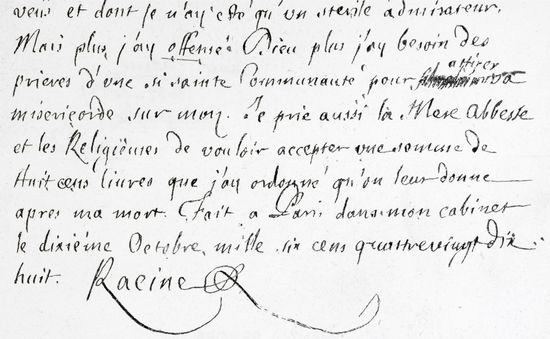 veus et dont je n'ay esté qu'un sterile admirateur.
Mais plus j'ay offensé Dieu plus j'ay besoin des
prieres d'une si sainte Communauté pour attirer sa
misericorde sur moy. Je prie aussi la Mere Abbesse
et les Religieuses de vouloir accepter une somme de
huit cens livres que j'ay ordonné qu'on leur donne
apres ma mort. Fait a Paris dans mon cabinet
le dixiéme Octobre, mille six cens quattrevingt dix
huit. Racine